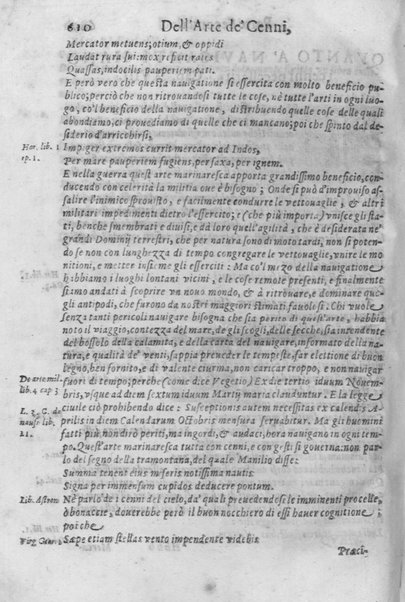 610 Dell'Arte de' Cenni,
Mercator metuens; otium, & oppidi
Laudat rura sui: mox reficit rates
Quassas, indocilis pauperiem pati.
E però vero che questa nauigatione si essercita con molto beneficio pu-
blico; perciò che non ritrouandosi tutte le cose, nè tutte l'arti in ogni luo-
go, co'l beneficio della nauigatione, distribuendo quelle cose delle quali
abondiamo, ci prouediamo di quelle che ci mancano; poi che spinto dal de-
siderio d'arricchirsi,
Hor. lib. 1 Impiger extremos currit mercator ad Indos,
ep. 1. Per mare pauperiem fugiens, per saxa, per ignem.
E nella guerra quest'arte marinaresca apporta grandissimo beneficio, con-
ducendo con celerità la militia oue è bisogno; Onde si può d'improuiso as-
salire l'inimico sprouisto, e facilmente condurre le vettouaglie, & altri
militar impedimenti dietro l'essercito; e (che più importa) vnisce gli sta-
ti, benche smembrati e diuisi, e dà loro quell'agilità, che è desiderata ne'
grandi Dominij terrestri, che per natura sono di moto tardi, non si poten-
do se non con lunghezza di tempo congregare le vettouaglie, vnire le mo-
nitioni, e metter insieme gli esserciti: Ma co'l mezo della nauigatione
habbiamo i luoghi lontani vicini, e le cose remote presenti, e finalmente
siamo andati à scoprire vn nouo mondo, & à ritrouare, e dominare que-
gli antipodi, che furono da nostri maggiori stimati fauolosi: Chi vuole
senza tanti pericoli nauigare bisogna che sia perito di quell'arte, habbia
noto il viaggio, contezza del mare, de gli scogli, delle secche, sia intendente
del bossolo della calamita, e della carta del nauigare, informato della na-
tura, e qualità de' venti, sappia preueder le tempeste, far elettione di buon
legno, ben fornito, e di valente ciurma, non caricar troppo, e non nauigar
De arte mil. fuori di tempo; perche (come dice Vegetio) Ex die tertio iduum Nouem-
lib. 4. cap 3 bris, vsque ad diem sextum iduum Martij maria clauduntur. E la legge
L. 3. C. de ciuile ciò prohibendo dice: Susceptionis autem necessitas ex calend: A-
naufr lib. prilis in diem Calendarum Octobris mensura seruabitur. Ma gli huomini
11. fatti più nondirò periti, ma ingordi, & audaci, hora nauigano in ogni tem-
po. Quest'arte marinaresca tutta con cenni, e con gesti si gouerna: non par-
lo del segno della tramontana, del quale Manilio disse:
Summa tenent eius miseris notissima nautis
Signa per immensum cupidos ducentes pontum.
Lib. Astron. Nè parlo de i cenni del cielo, da' quali preuedendose le imminenti procelle,
ò bonaccie, douerebbe però il buon nocchiero di essi hauer cognitione;
poi che
Virg Geor. 1 Sæpe etiam stellas vento impendente videbis
Præci-